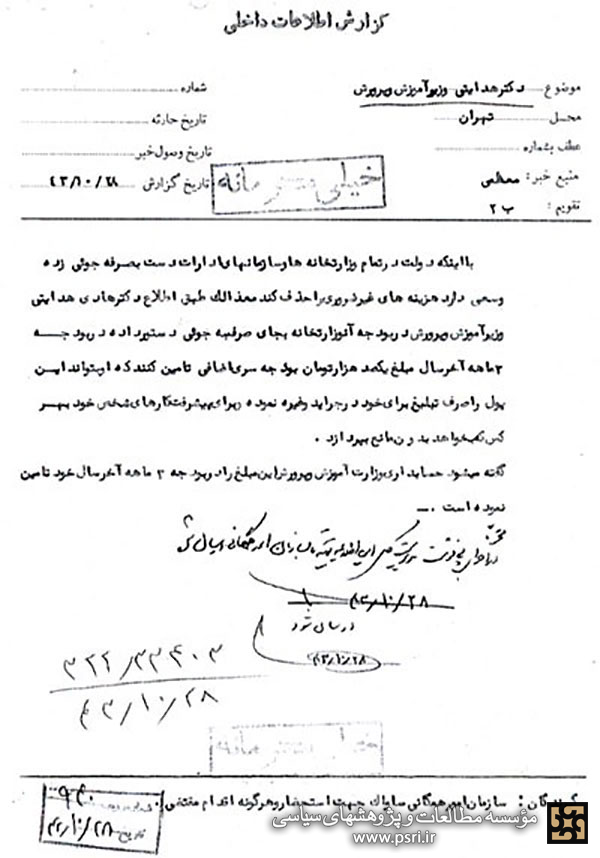 گزارش اطلاعات داخلی
موضوع دکتر هدایتی وزیر آموزش و پرورش
شماره
محل تهران
تاریخ حادثه
عطف بشماره
تاریخ وصول خبر
منبع خبر:
تاریخ گزارش ۴۳/۱۰/۲۸
خیلی محرمانه
تقویم: ب ۲
با اینکه دولت در تمام وزارتخانه ها و سازمانهای ادارات دست بصرفه جوئی زده
وسعی دارد هزینه های غیر ضروری را حذف کند معذالک طبق اطلاع دکتر هادی هدایتی
وزیر آموزش و پرورش در بودجه آن وزارتخانه بجای صرفه جوئی دستور داده در بودجه
۳ ماهه آخر سال مبلغ یکصد هزار تومان بودجه سری اضافی تامین کنند که او بتواند این
پول را صرف تبلیغ برای خود در جراید وغیره نموده و برای پیشرفت کارهای شخصی خود بهر
کس که بخواهد بدون مانع بپردازد .
گفته میشود حسابداری وزارت آموزش و پرورش این مبلغ را در بودجه ۳ ماهه آخر سال خود تامین
نموده است .
۴۳/۱۰/۲۸
ارسال شود
۴۳/۱۰/۲۸
۳۲۲/۳۳۴۰۳
۴۳/۱۰/۲۸
خیلی محرمانه
گیرندگان: سازمان امور همگانی ساواک جهت استحضار و هرگونه اقدام مقتضی
تاریخ ۴۳/۱۰/۲۸
مؤسسه مطالعات و پژوهشهای سیاسی
www.psri.ir